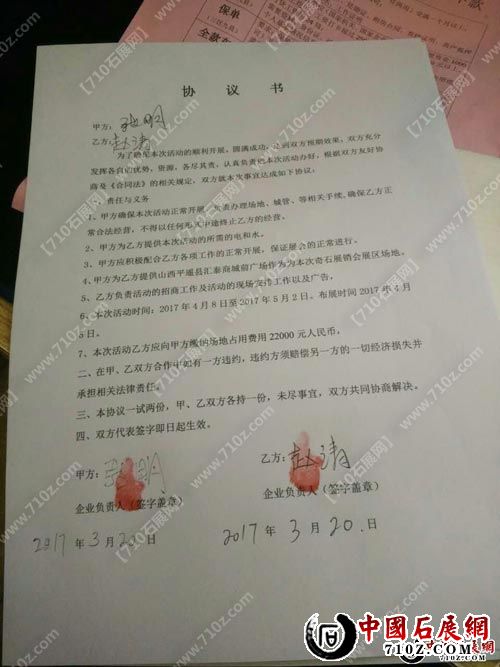 保单
全款
协 议 书
甲方：张明
乙方：赵涛
为了确保本次活动的顺利开展，圆满成功，达到双方预期效果，双方充分
发挥各自的优势，资源，各尽其责，认真负责把本次活动办好，根据双方友好协
商及《合同法》的相关规定，双方就本次事宜达成如下协议：
责任与义务
1、甲方确保本次活动正常开展，负责办理场地、城管、等相关手续、确保乙方正
常合法经营，不得以任何形式中途终止乙方的经营。
2、甲方为乙方提供本次活动的所需的电和水。
3、甲方应积极配合乙方各项工作的正常开展，保证展会的正常进行。
4、甲方为乙方提供山西平遥县汇泰商城前广场作为为本次奇石展销会展区场地。
5、乙方负责活动的招商工作及活动的现场宣传工作以及广告，
6、本次活动时间：2017 年 4 月 8 日至 2017 年 5 月 2 日。布展时间 2017 年 4 月
5 日。
7、本次活动乙方应向甲方缴纳场地占用费用 22000 元人民币，
二、在甲、乙双方合作中如有一方违约，违约方须赔偿另一方的一切经济损失并
承担相关法律责任。
三、本协议一试两份，甲、乙双方各持一份，未尽事宜，双方共同协商解决。
四、双方代表签字即日起生效。
甲方：张明
乙方：赵涛
企业负责人（签字盖章）
企业负责人（签字盖章）
2017 年 3 月 20 日
2017 年 3 月 20 日
中國石展網
710Z.COM
【710石展网】
www.710z.com